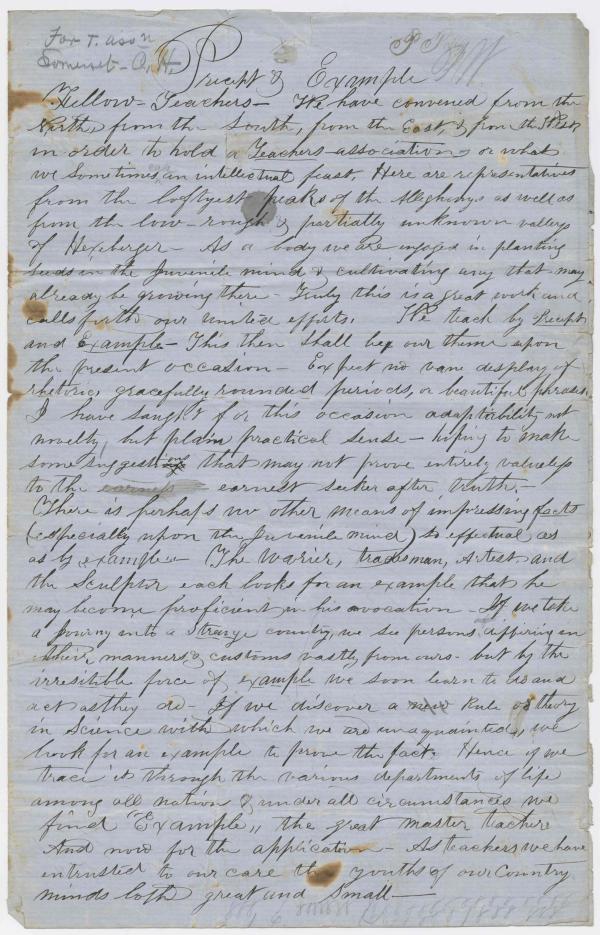 For T. ason
Somerset - O. H.
Precept & Example
Fellow-Teachers - We have convened from the
North, from the South, from the East, & from the West
in order to hold a Teachers-association or what
we sometimes an intellectual feast. Here are representatives
from the loftyest peaks of the Aleghanys as well as
from the low-rough & partially unknown valleys
of Hexeberger - As a body we are engaged in planting
seeds in the Juvenile mind & cultivating any that may
already be growing there - Truly this is a great work and
calls forth our united efforts. We teach by Precept
and Example - This then shall be our theme upon
the present occasion - Expect no vane display of
rhetoric, gracefully rounded periods, or beautiful phrases.
I have saught for this occasion adaptibility not
novelty, but plain practical sense - hoping to make
some suggestions that may not prove entirely valueless
to the earness earnest seeker after truth. -
There is perhaps no other means of impressing facts
(especially upon the Juvenile mind) so effectual as
as by example - The Warier, tradesman, Artest and
the Sculptor each looks for an example that he
may become proficient in his avocation - If we take
a Journey into a Strange country, we see persons differing in
their manners & customs vastly from ours - but by the
irresitible force of example we soon learn to do and
act as they do - If we discover a new Rule or theory
in Science with which we are unaquainted, we
look for an example to prove the fact. Hence if we
trace it through the various departments of life
among all nation & under all circumstances we
find "Example" the great master teacher
And now for the application - As teachers we have
intrusted to our care the youths of our Country
minds both great and small -